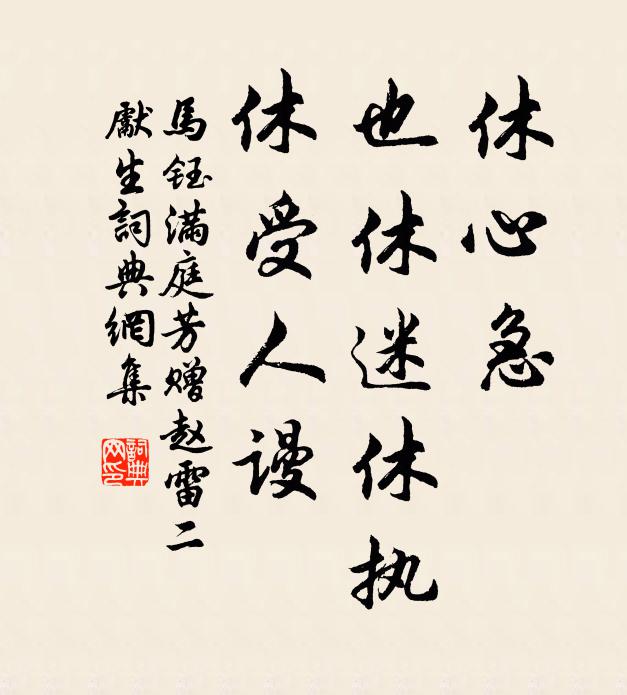 休心急
也休迷休执
休受人谩
馬钰满庭芳赠赵雷二
獻生詞典網集
詞典网印